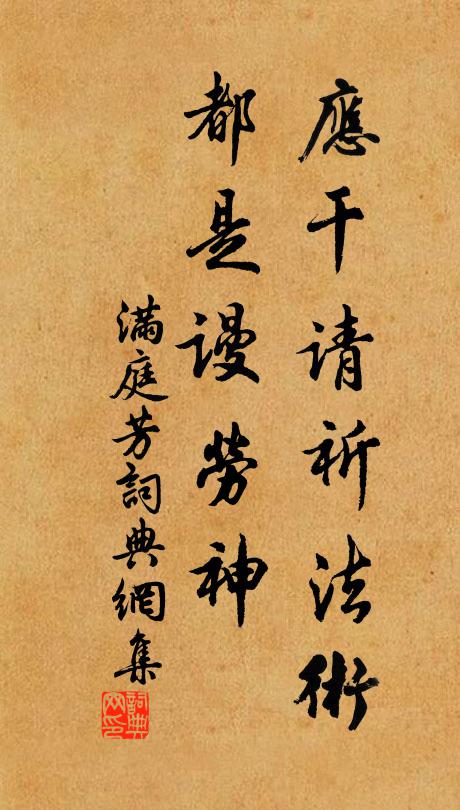 應干請祈法術
都是謾勞神
滿庭芳詞典網集
詞典
网印